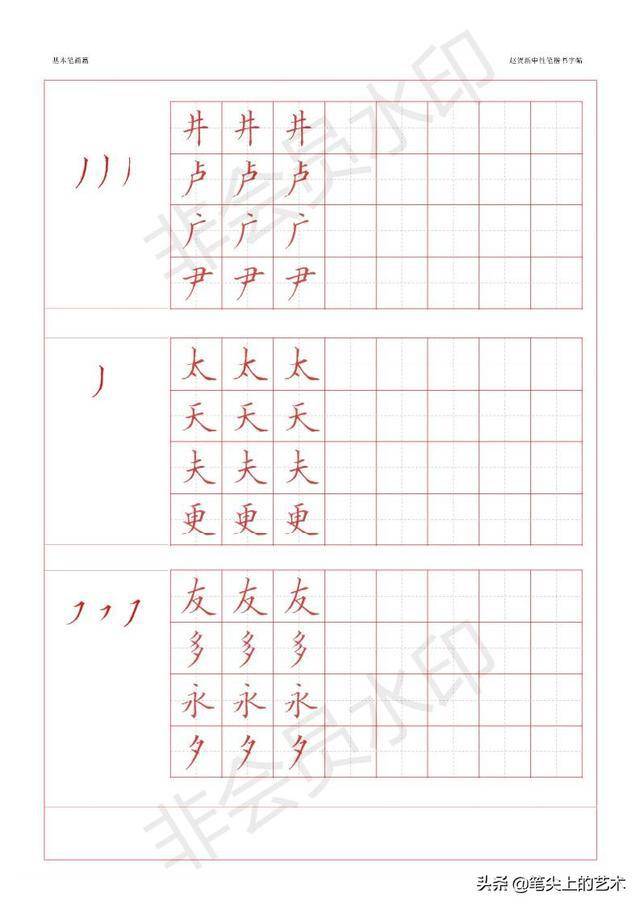 基本笔画篇
赵贺新中性笔楷书字帖
井 井 井
卢 卢 卢
广 广 广
尹 尹 尹
太 太 太
天 天 天
夫 夫 夫
更 更 更
友 友 友
多 多 多
永 永 永
夕 夕 夕
非会员水印
非会员水印
头条 @笔尖上的艺术